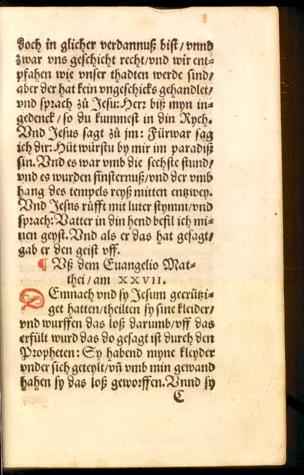 doch in glicher verdannuß bist/vnnd
zwar vns geschicht recht/vnd wir ent-
pfahen wie vnser thadten werde sind/
aber der hat kein vngeschicks gehandlet/
vnd sprach zů Jesu: Herr biß myn in-
gedenck/so du kummest in din Rych.
Vnd Jesus sagt zů jm: Fürwar sag
ich dir: Hüt würstu by mir im paradiß
sin. Vnd es war vmb die sechste stund/
vnd es wurden finsternuß/vnd der vmb
hang des tempels reyß mitten entzwey.
Vnd Jesus rüfft mit luter stymm/vnd
sprach: Vatter in din hend befil ich mi-
nen geyst. Vnd als er das hat gesagt/
gab er den geist vff.
¶ Vß dem Euangelio Mat-
thei/am XXVII.
DEmnach vnd sy Jesum gecrützi-
get hatten/theilten sy sine kleider/
vnd wurffen das loß darumb/vff das
erfült wurd das do gesagt ist durch den
Propheten: Sy habend myne kleyder
vnder sich geteylt/vñ vmb min gewand
haben sy das loß geworffen. Vnnd sy
C